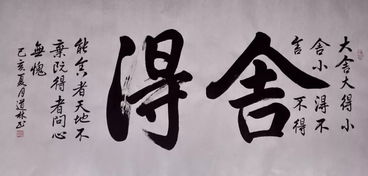 大舍大得小
舍小得不
舍不得
舍得
能舍者天地不
棄既得者問心
無愧
己亥夏月道林書